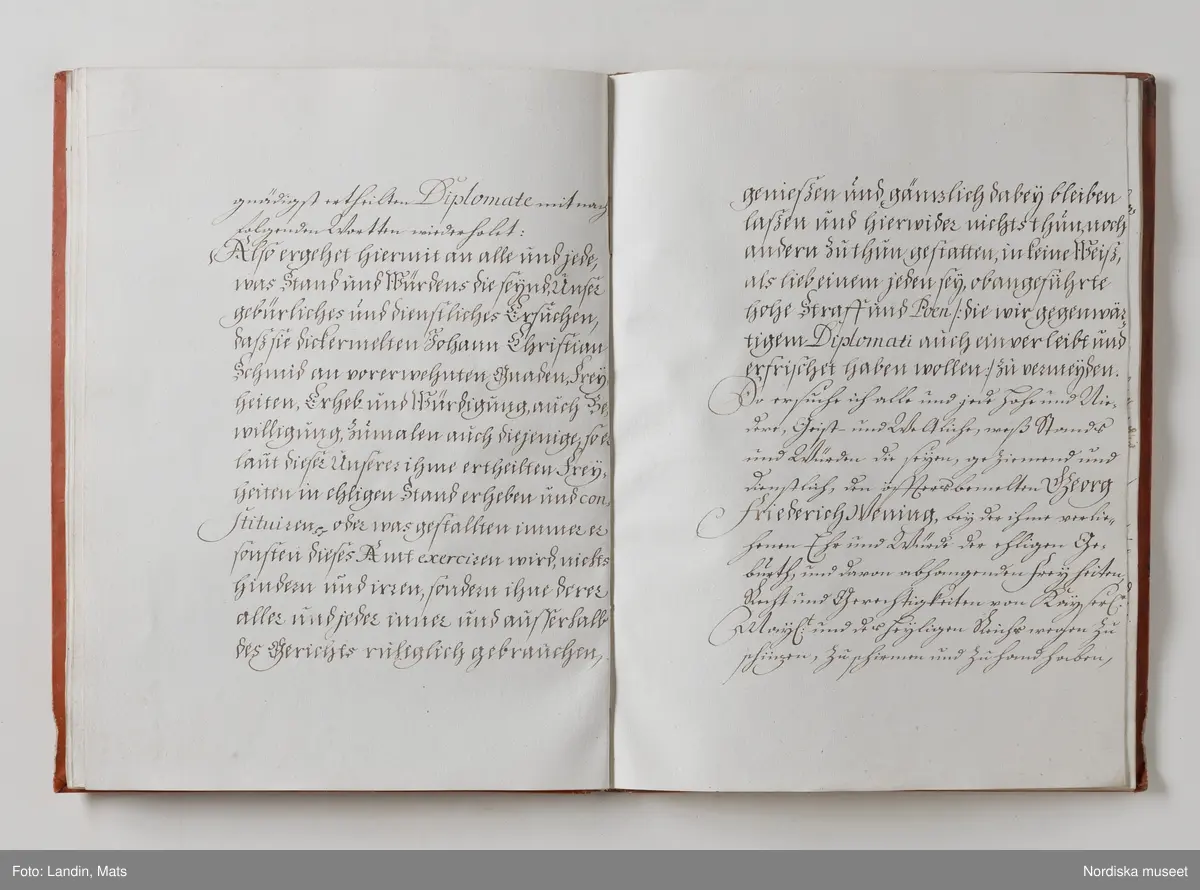 gnädigst ertheilten Diplomate mit nach
folgenden Wortten wiederholt:
Also ergehet hiermit an alle und jede,
was Stand und Würdens die seynd, Unser
gebürliches und dienstliches Ersuchen,
daß sie dickermelten Johann Christian
Schmid an vorerwehnten Gnaden, Frey,
heiten, Erheb und Würdigung, auch Be,
willigung, Zumalen auch diejenige, so er
laut dieser Unserer ihme ertheilten Frey,
heiten in ehligen Stand erheben und con,
stituiren, oder was gestallten immer er
sonsten dieses Amt exerciren wird, nichts
hindern und irren, sondern ihne derer
aller und jeder inner und ausserhalb
des Gerichts ruhiglich gebrauchen,
genießen und gänzlich dabey bleiben
laßen und hierwider nichts thun, noch
andern Zu thun gestatten, in keine Weiß,
als lieb einem jeden sey, obangeführte
hohe Straff und Poen /: die wir gegenwär,
tigem Diplomati auch einverleibt und
erfrischet haben wollen :/ zu vermeyden.
So ersuche ich alle und jede Hohe und Nie-
dere, Geist- und Weltliche, weß Stands
und Würden die seyen, geziemend und
dienstlich, den öffters bemelten Georg
Friederich Wening, bey der ihme verlie-
henen Ehr und Würde der ehligen Ge-
burth, und davon abhangenden Freyheiten,
Recht und Gerechtigkeiten von Kayserl:
Mayt: und des Heyligen Reichs wegen Zu
schüzen, Zu schirmen und Zu handhaben,
Foto: Landin, Mats
Nordiska museet